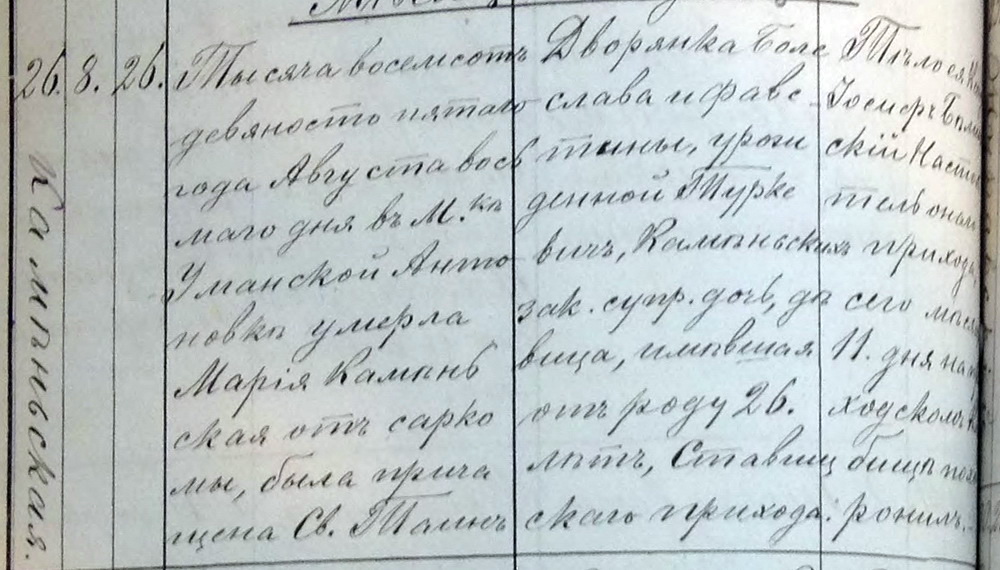 26. 8. 26.
Камѣньская.
Тысяча восемсотъ
девяносто пятаго
года Августа вось
маго дня въ М.кѣ
Уманской Анто
новкѣ умерла
Марія Камѣнь
ская отъ сарко
мы, была прича
щена Св. Таинъ
Дворянка Боле
слава и Фавс-
тины, урож
денной Турке
вичъ, Камѣньскихъ
зак. супр. дочь, дѣ
вица, имѣвшая
отъ роду 26.
лѣтъ, Ставищ
скаго прихода:
Тѣло ея
Іосифъ
скій
тель оныи
прихода
сего
11. дня на
ходском
бищѣ
ронилъ.